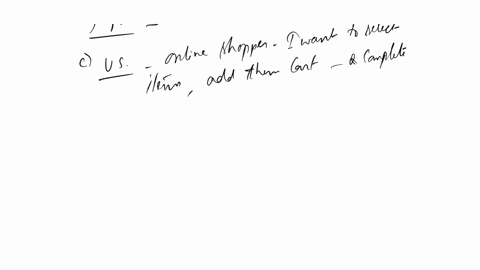 c) US. - online shopper - I want to select
items, add them Cart - & Complete